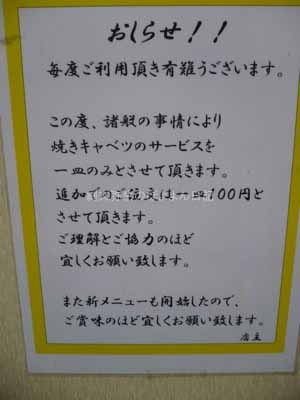 おしらせ！！
毎度ご利用頂き有難うございます。
この度、諸般の事情により
焼きキャベツのサービスを
一皿のみとさせて頂きます。
追加でのご注文は一皿100円と
させて頂きます。
ご理解とご協力のほど
宜しくお願い致します。
また新メニューも開始したので、
ご賞味のほど宜しくお願い致します。
店主